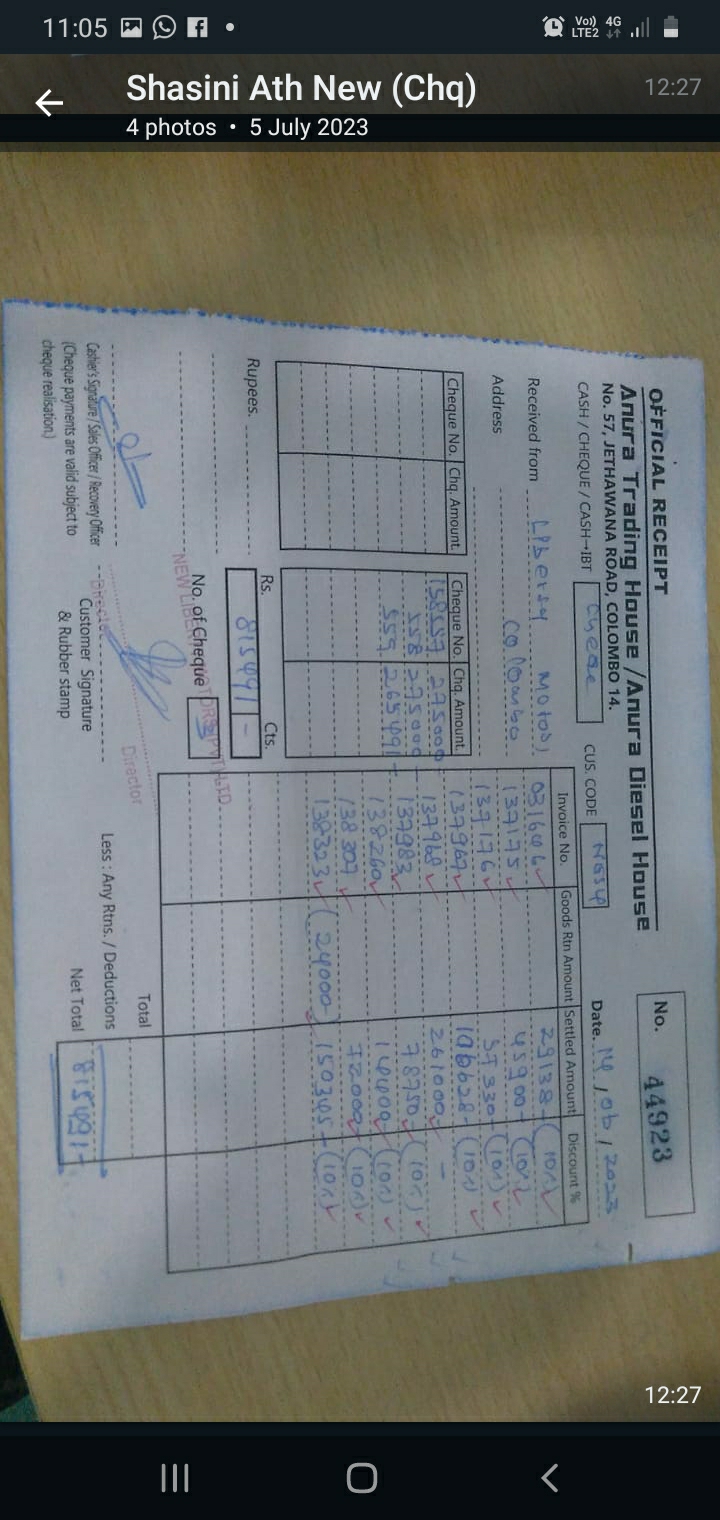 11:05
Vo)) LTE2 4G
Shasini Ath New (Chq)
12:27
4 photos • 5 July 2023
OFFICIAL RECEIPT
No. 44923
Anura Trading House /Anura Diesel House
No. 57, JETHAWANA ROAD, COLOMBO 14.
CASH / CHEQUE / CASH→IBT
CUS. CODE
Date. 14 / 06 / 2023
Received from
Address Colombo
Cheque No. Chq. Amount. Cheque No. Chq. Amount.
158557 275000-
558 275000-
559 265491-
Invoice No. Goods Rtn Amount Settled Amount Discount %
031606 29138-
137175 45900-
137176 57330-
137967 106628-
137968 261000 -
137983 78750
138260 14400
138307 72000
138323 (24000) 150345-
Rupees.
Rs. Cts.
815491 -
No. of Cheque 3
NEW LIBERTY MOTORS (PVT) LTD
Director
Director
Cashier's Signature / Sales Officer / Recovery Officer
(Cheque payments are valid subject to
cheque realisation.)
Customer Signature
& Rubber stamp
Total
Less : Any Rtns. / Deductions
Net Total 815491-
12:27